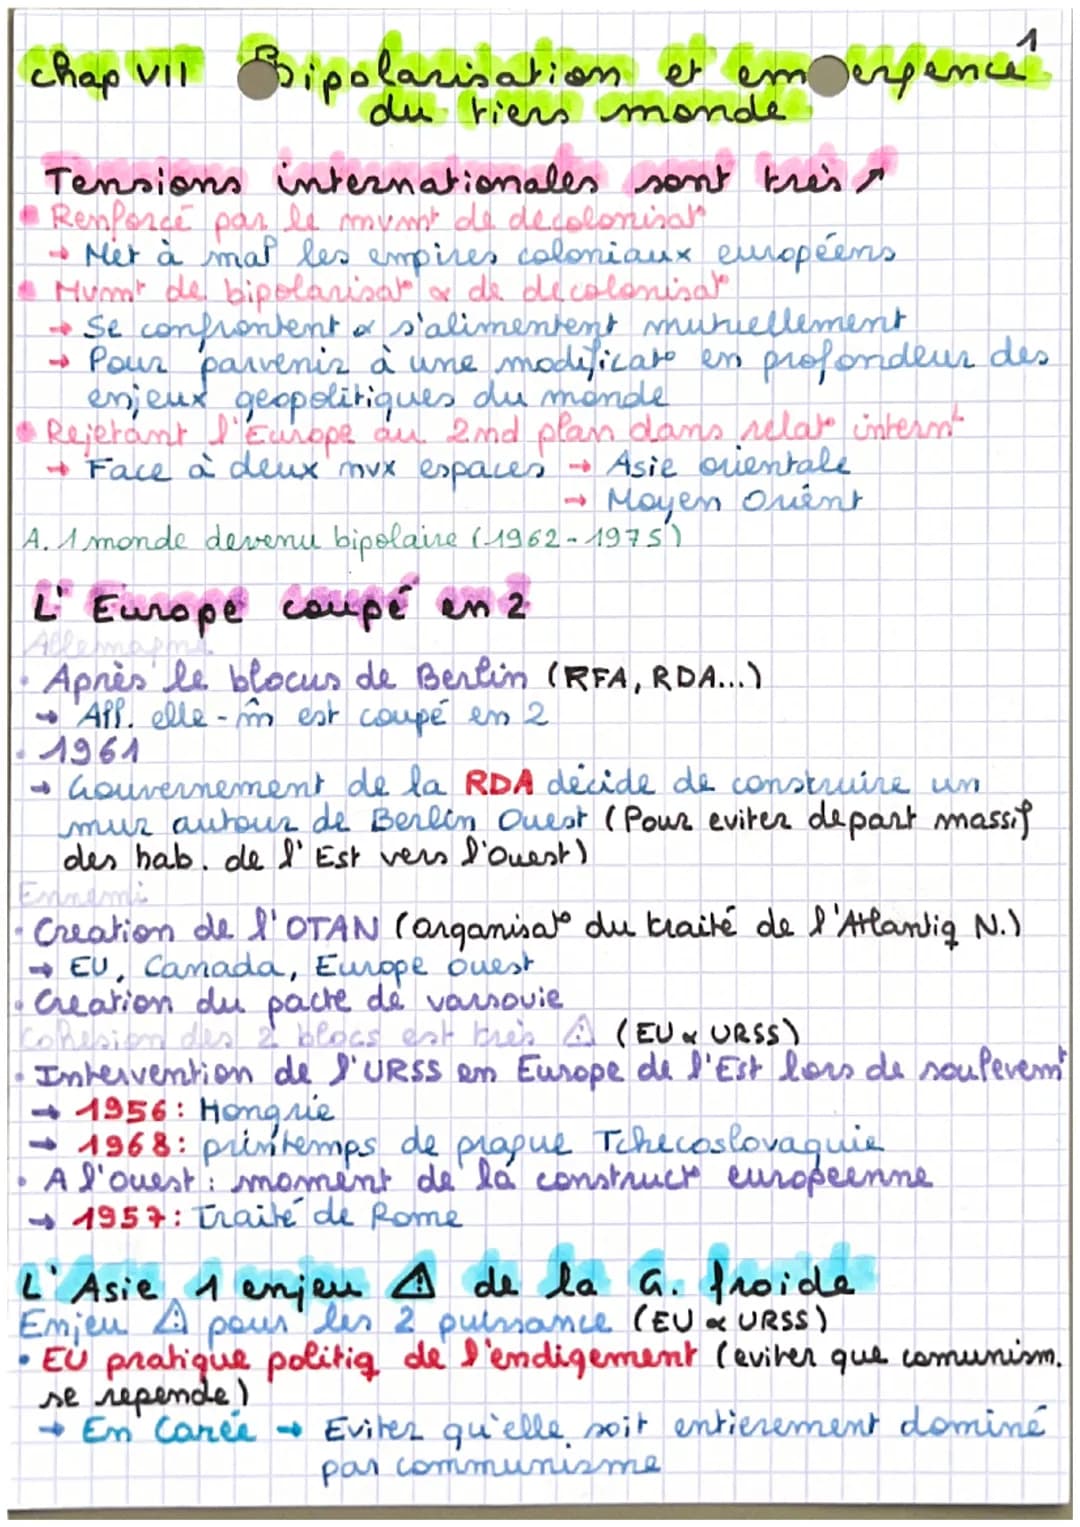 1
Chap VII Bipolarisation et emergence
du tiers monde
Tensions internationales sont très ↗
• Renforcé par le mvmt de decolonisat°
→ Met à mal les empires coloniaux européens
• Mvmt de bipolarisat° & de decolonisat°
→ Se confrontent & s'alimentent mutuellement
→ Pour parvenir à une modificat° en profondeur des
enjeux geopolitiques du monde
• Rejetant l'Europe au 2nd plan dans relat° internt
→ Face à deux nvx espaces → Asie orientale
→ Moyen Orient
A. 1 monde devenu bipolaire (1962-1975)
L'Europe coupé en 2
Allemagne
• Après le blocus de Berlin (RFA, RDA...)
→ All. elle-m̂ est coupé en 2
• 1961
→ Gouvernement de la RDA décide de construire un
mur autour de Berlin Ouest (Pour eviter depart massif
des hab. de l'Est vers l'Ouest)
Ennemi
• Creation de l'OTAN (Organisat° du traité de l'Atlantiq N.)
→ EU, Canada, Europe ouest
• Creation du pacte de varsovie
Cohesion des 2 blocs est très ⚠ (EU & URSS)
• Intervention de l'URSS en Europe de l'Est lors de soulevemt
→ 1956: Hongrie
→ 1968: printemps de prague Tchecoslovaquie
• A l'ouest: moment de la construct° européenne
→ 1957: Traité de Rome
L'Asie 1 enjeu ⚠ de la G. froide
Enjeu ⚠ pour les 2 puissance (EU & URSS)
• EU pratique politiq de l'endigement (eviter que comunism.
se repende)
→ En Corée → Eviter qu'elle soit entierement dominé
par communisme